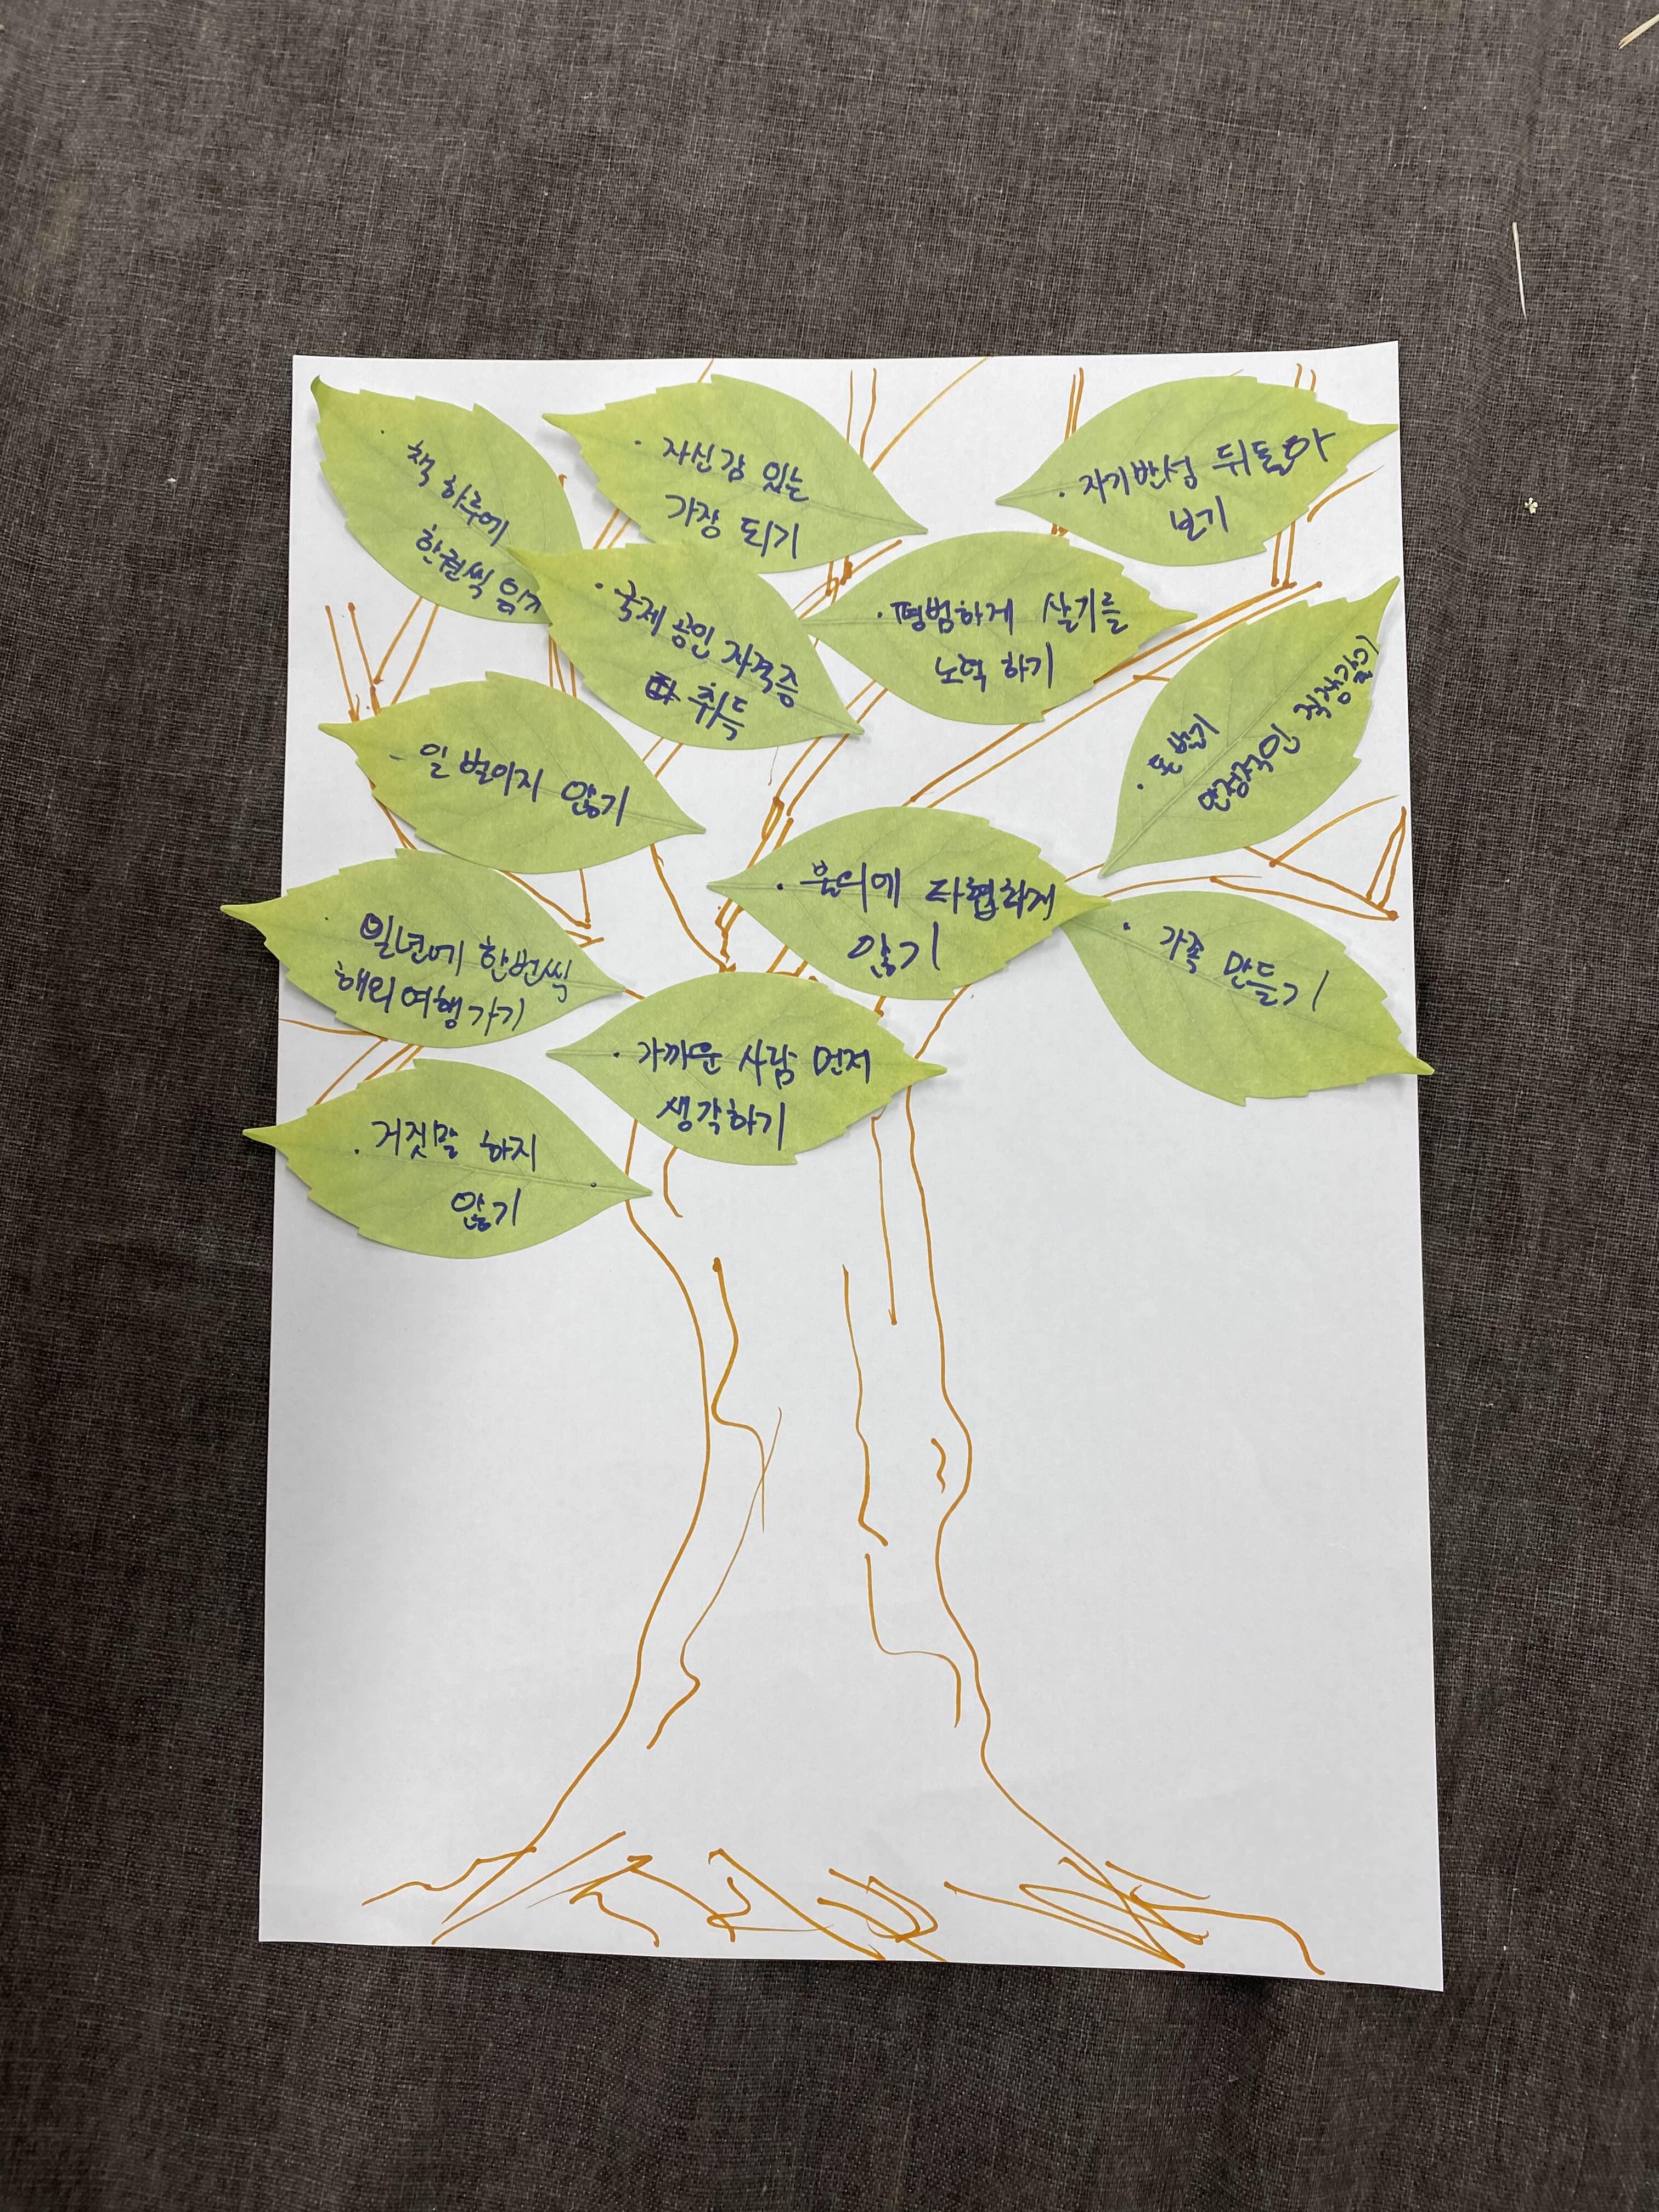 · 책 하루에
한권씩 읽기
· 자신감 있는
가장 되기
· 자기반성 뒤돌아
보기
· 국제 공인 자격증
취득
· 평범하게 살기를
노력 하기
· 돈 벌기
안정적인 직장갖기
· 일 벌이지 않기
· 불의에 타협하게
않기
· 일년에 한번씩
해외여행가기
· 가족 만들기
· 가까운 사람 먼저
생각하기
· 거짓말 하지
않기